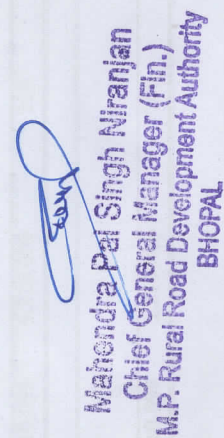 Mahendra Pal Singh Niranjan
Chief General Manager (Fin.)
M.P. Rural Road Development Authority
BHOPAL